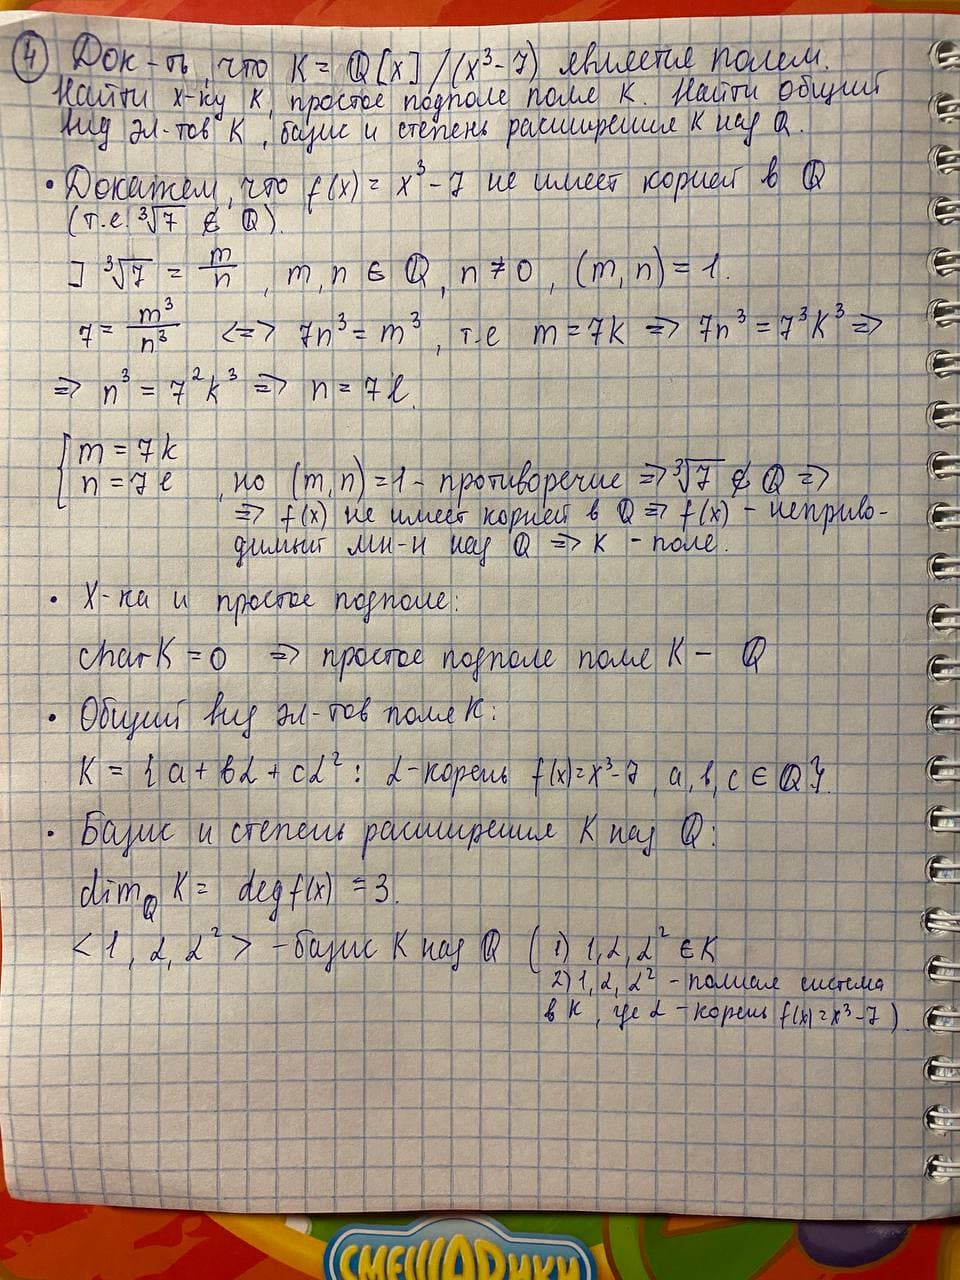 ④ Док-ть, что K = Q[x]/(x³-7) является полем.
Найти х-ку K, простое подполе поля K. Найти общий
вид эл-тов K, базис и степень расширения K над Q.
• Докажем, что f(x) = x³-7 не имеет корней в Q
(т.е. ∛7 ∉ Q).
] ∛7 = m/n, m, n ∈ Q, n ≠ 0, (m, n) = 1.
7 = m³/n³ <=> 7n³ = m³, т.е m = 7k => 7n³ = 7³k³ =>
=> n³ = 7²k³ => n = 7l.
[ m = 7k
n = 7l , но (m, n) = 1 - противоречие => ∛7 ∉ Q =>
=> f(x) не имеет корней в Q => f(x) - неприво-
димый мн-н над Q => K - поле.
• Х-ка и простое подполе:
char K = 0 => простое подполе поля K - Q
• Общий вид эл-тов поля K:
K = { a + bα + cα² : α-корень f(x)=x³-7, a, b, c ∈ Q}.
• Базис и степень расширения K над Q:
dim_Q K = deg f(x) = 3.
<1, α, α²> - базис K над Q ( 1) 1, α, α² ∈ K
2) 1, α, α² - полная система
в K, где α - корень f(x)=x³-7).
СМЕШАРИКИ